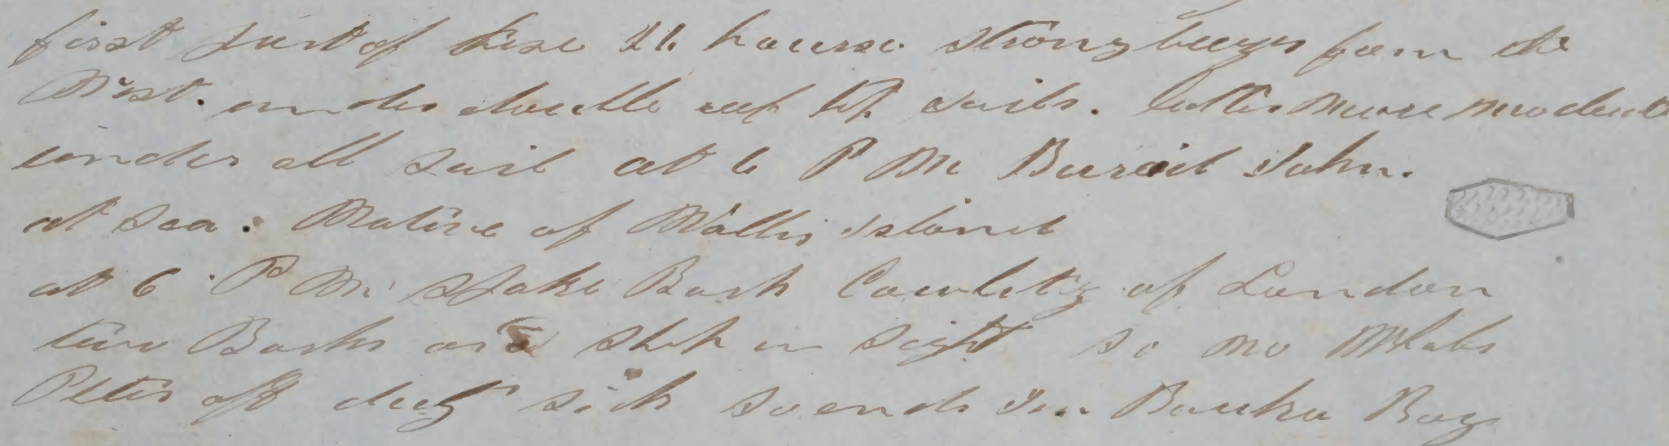 first Part of these 24 hourse strong breezes from the
West. under double reef top sails. latter more moderate
under all sail at 6 P M Buried John.
at sea. Native of Wallis Island
at 6 P M Spoke Bark Cowlitz of London
two Barks one Ship in sight So no Whales
Peter off duty sick So ends